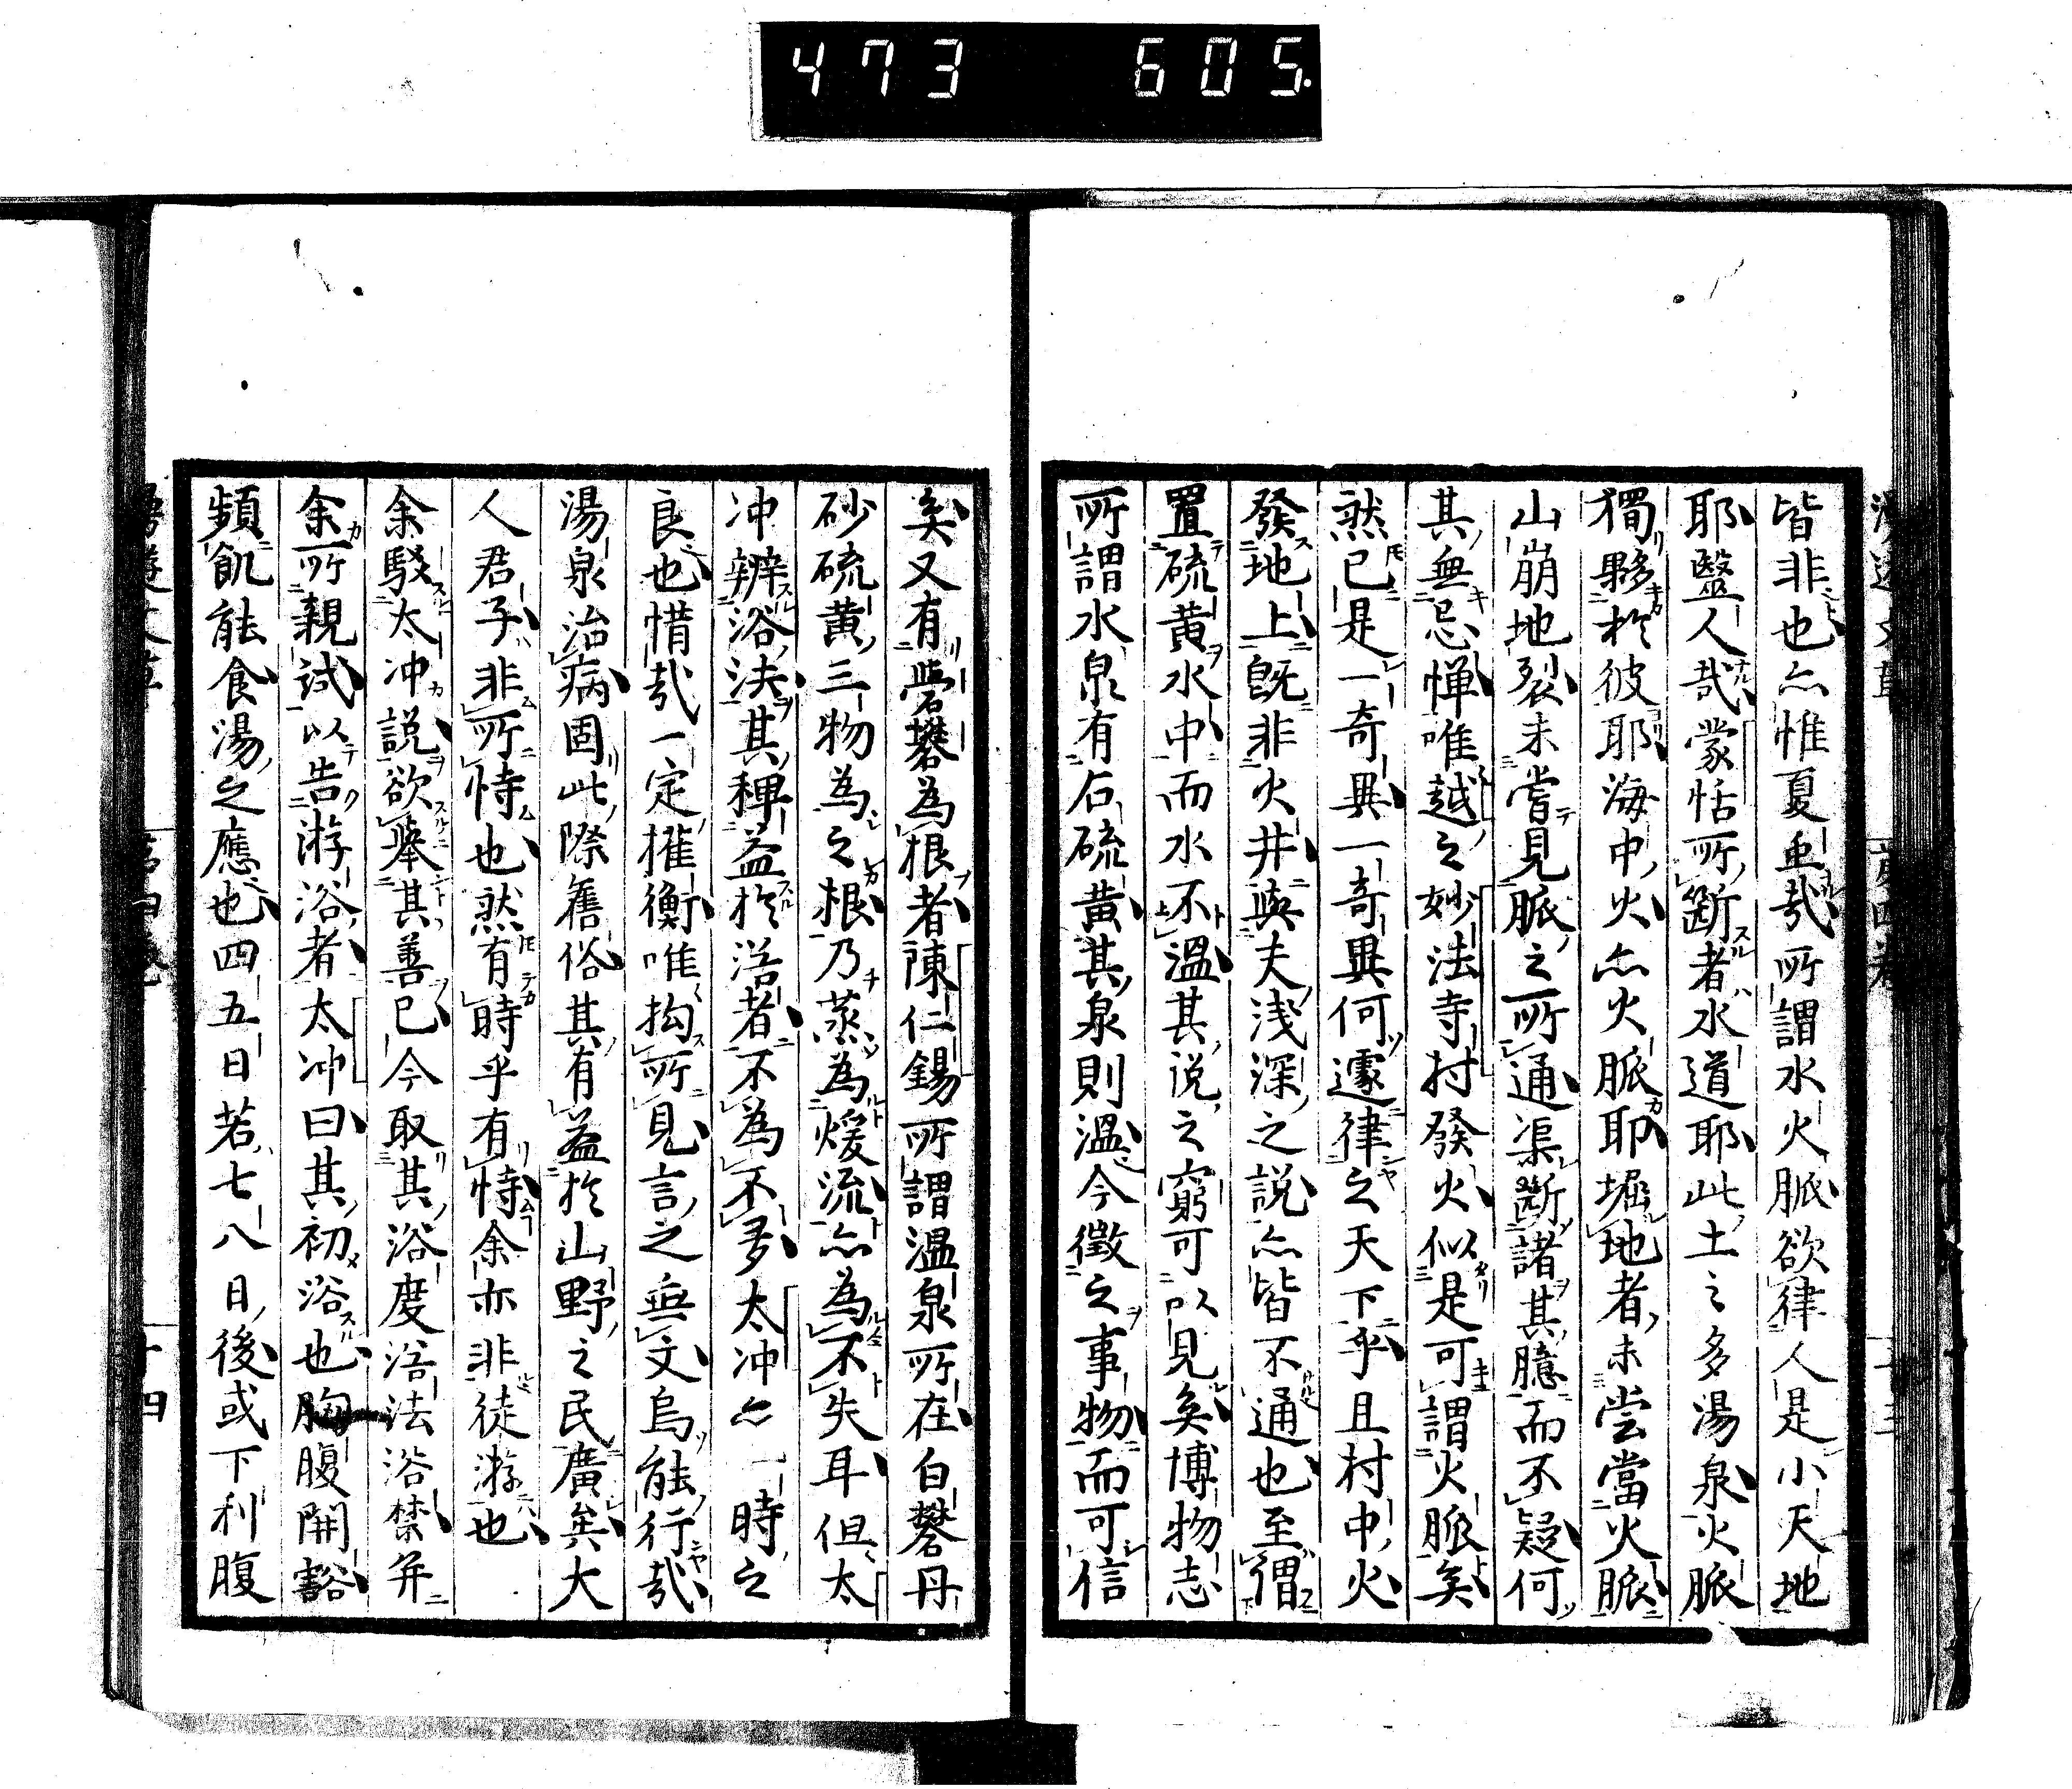 473 605.
皆非也亦惟夏虫哉所謂水火脈欲律人是小天地
耶毉人哉蒙恬所斷者水道耶此土之多湯泉火脈
獨夥於彼耶海中火亦火脈耶堀地者未尝當火脈
山崩地裂未嘗見脈之所通渠斷諸其臆而不疑何
其無忌憚唯越之妙法寺村發火似是可謂火脈矣
然已是一奇異一奇異何遽律之天下乎且村中火
發地上既非火井與夫浅深之説亦皆不通也至謂
置硫黄水中而水不温其説之窮可以見矣博物志
所謂水泉有石硫黄其泉則温今徴之事物而可信
矣又有礜礬為根者陳仁錫所謂温泉所在白礬丹
砂硫黄三物為之根乃蒸為煖流亦為不失耳但太
冲辨浴法其稗益於浴者不為不多太冲亦一時之
良也惜哉一定搉衡唯拘所見言之無文烏能行哉
湯泉治病固此際舊俗其有益於山野之民廣矣大
人君子非所恃也然有時乎有恃余亦非徒游也
余駁太冲説欲舉其善已今取其浴度浴法浴禁并
余所親試以告游浴者太冲曰其初浴也胸腹開豁
頻飢能食湯之應也四五日若七八日後或下利腹
第四巻
十四